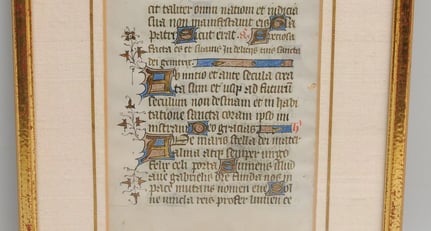 cit taliter omni nationi et iudicia
sua non manifestauit eis Gl̃a
patri Sicut erat a. Speciosa
facta es et suauis in deliciis tuis sancta
dei genitrix
Ab initio et ante secula crea
ta sum et usq ad futurum
seculum non desinam et in habi
tatione sancta coram ipso mi
nistraui Deo gracias h'
Aue maris stella dei mater
alma atq semper uirgo
felix celi porta Sumens illud
aue gabrielis ore funda nos in
pace mutans nomen eue Sol
ue uincla reis profer lumen ce